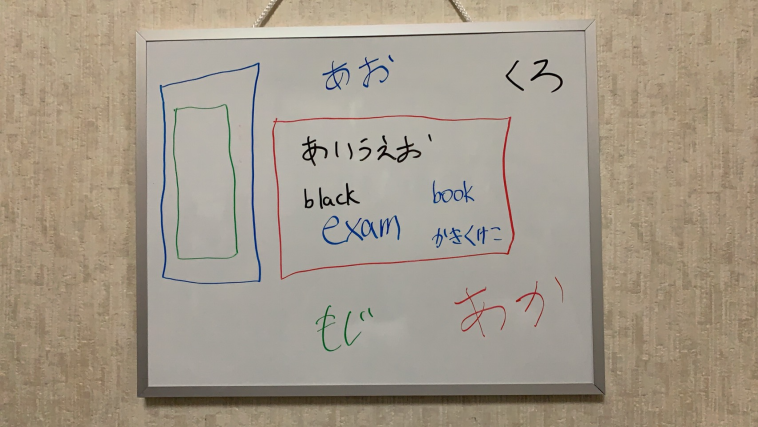 あお
くろ
あいうえお
black
book
exam
かきくけこ
もじ
あか